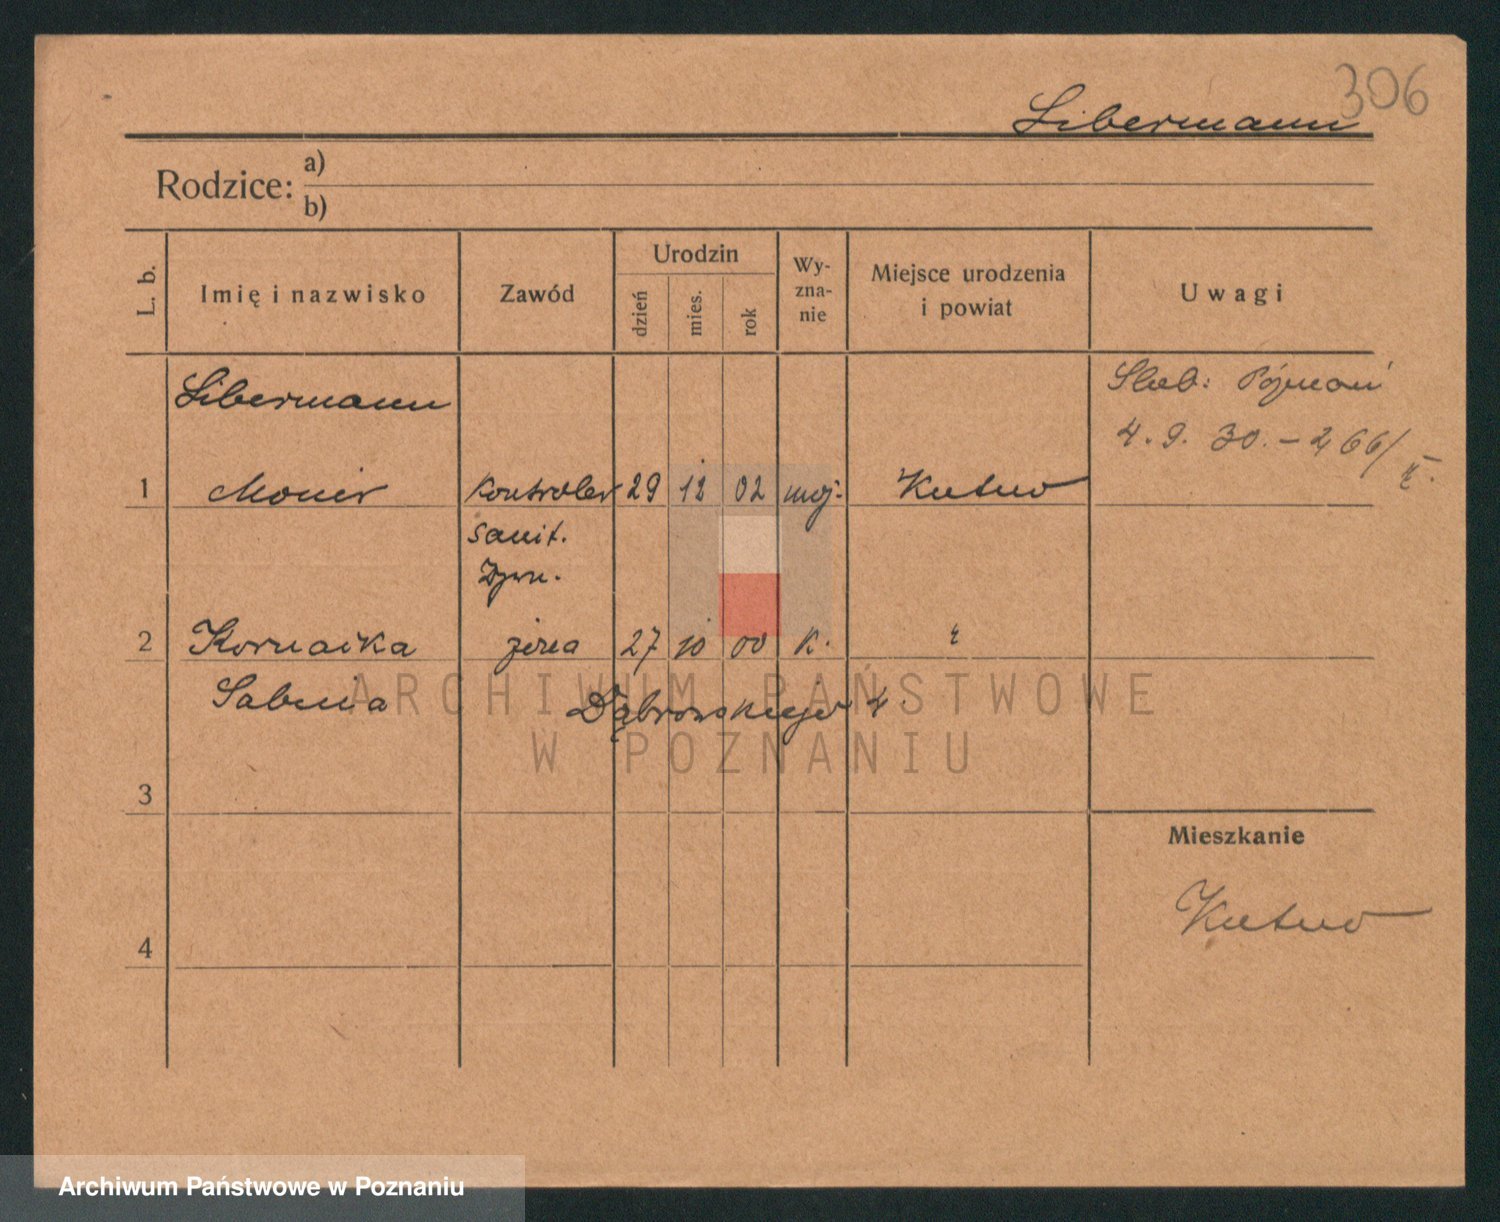 306
Libermann
Rodzice: a)
b)
L. b.
Imię i nazwisko
Zawód
Urodzin
dzień
mies.
rok
Wy-
zna-
nie
Miejsce urodzenia
i powiat
Uwagi
Libermann
Ślub: Poznań
4. 9. 30. - 266/
1 kontroler 29 12 02 moj. Kutno
sanit.
2 27 10 00 k.
Dąbrowskiego 4.
3
Mieszkanie
Kutno
4
ARCHIWUM PAŃSTWOWE
W POZNANIU
Archiwum Państwowe w Poznaniu